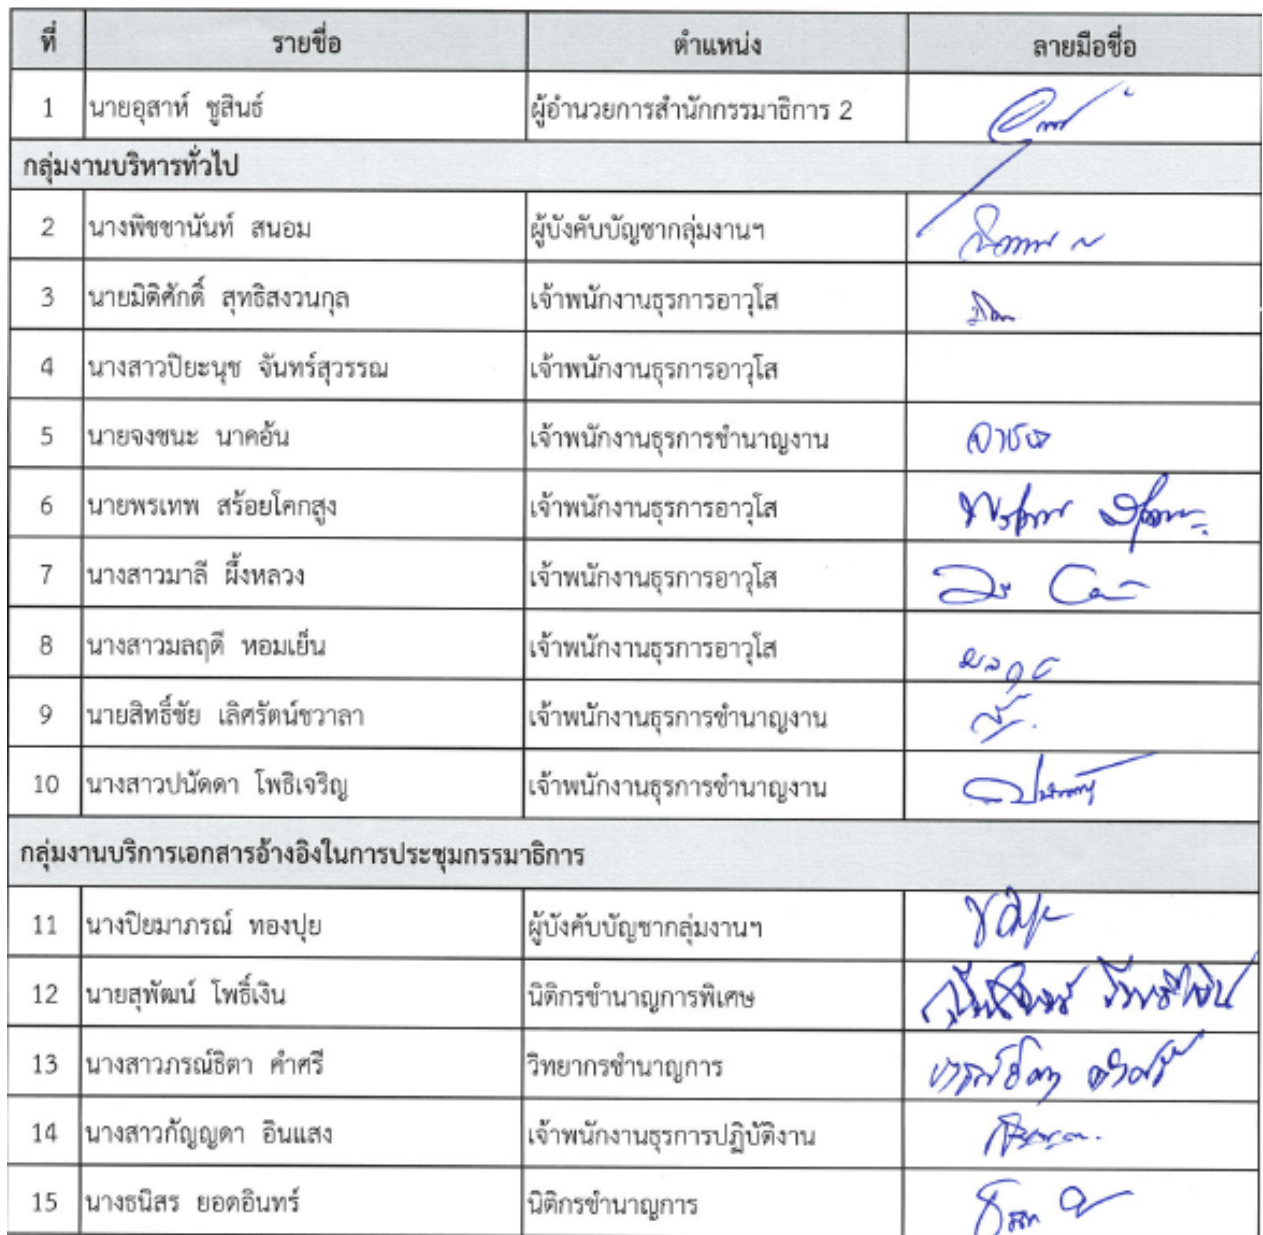 ที่ รายชื่อ ตำแหน่ง ลายมือชื่อ
1 นายอุสาห์ ชูสินธ์ ผู้อำนวยการสำนักกรรมาธิการ 2
กลุ่มงานบริหารทั่วไป
2 นางพิชชานันท์ สนอม ผู้บังคับบัญชากลุ่มงานฯ
3 นายมิติศักดิ์ สุทธิสงวนกุล เจ้าพนักงานธุรการอาวุโส
4 นางสาวปิยะนุช จันทร์สุวรรณ เจ้าพนักงานธุรการอาวุโส
5 นายจงชนะ นาคอ้น เจ้าพนักงานธุรการชำนาญงาน
6 นายพรเทพ สร้อยโคกสูง เจ้าพนักงานธุรการอาวุโส
7 นางสาวมาลี ผึ้งหลวง เจ้าพนักงานธุรการอาวุโส
8 นางสาวมลฤดี หอมเย็น เจ้าพนักงานธุรการอาวุโส มลฤดี
9 นายสิทธิ์ชัย เลิศรัตน์ชวาลา เจ้าพนักงานธุรการชำนาญงาน
10 นางสาวปนัดดา โพธิเจริญ เจ้าพนักงานธุรการชำนาญงาน
กลุ่มงานบริการเอกสารอ้างอิงในการประชุมกรรมาธิการ
11 นางปิยมาภรณ์ ทองปุย ผู้บังคับบัญชากลุ่มงานฯ
12 นายสุพัฒน์ โพธิ์เงิน นิติกรชำนาญการพิเศษ
13 นางสาวภรณ์ธิตา คำศรี วิทยากรชำนาญการ ภรณ์ธิตา คำศรี
14 นางสาวกัญญดา อินแสง เจ้าพนักงานธุรการปฏิบัติงาน
15 นางธนิสร ยอดอินทร์ นิติกรชำนาญการ